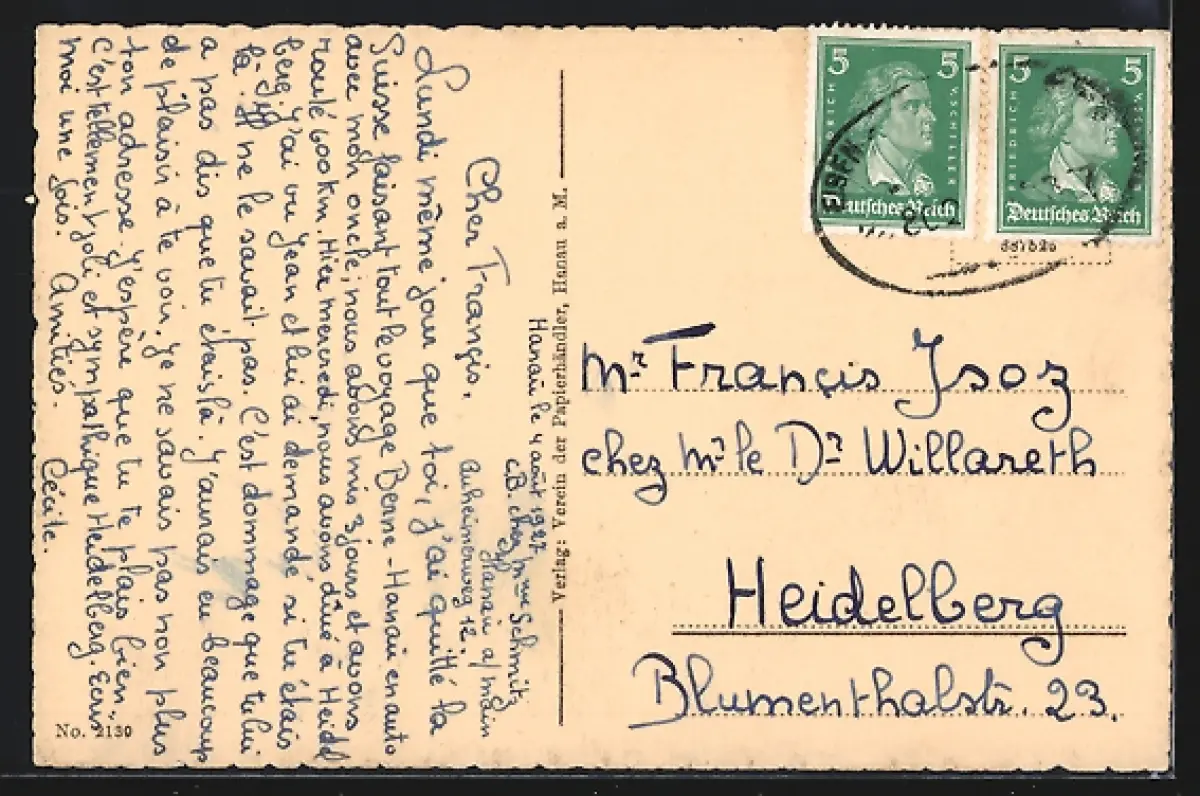 Hanau le 4 août 1927.
c.B. chez Mme Schmitz
Hanau a/Main
Auheimerweg 12.
Cher Françis.
Lundi même jour que toi, j'ai quitté la
Suisse faisant tout le voyage Berne-Hanau en auto
avec mon oncle; nous avons mis 3 jours et avons
roulé 600 km. Hier mercredi, nous avons dîné à Heidel
berg. j'ai vu Jean et lui ai demandé si tu étais
là. Il ne le savait pas. C'est dommage que tu lui
a pas dis que tu étais là. J'aurais eu beaucoup
de plaisir à te voir. Je ne savais pas non plus
ton adresse. J'espère que tu te plais bien,
c'est tellement joli et sympathique Heidelberg. Ecris
moi une fois. Amitiés.
Cécile.
No. 2130
Verlag: Verein der Papierhändler, Hanau a. M.
5 5
FRIEDRICH V SCHILLER
Deutsches Reich
5 5
FRIEDRICH V SCHILLER
Deutsches Reich
Mr. Françis Jsoz
chez Mr le Dr Willareth
Heidelberg
Blumenthalstr. 23.